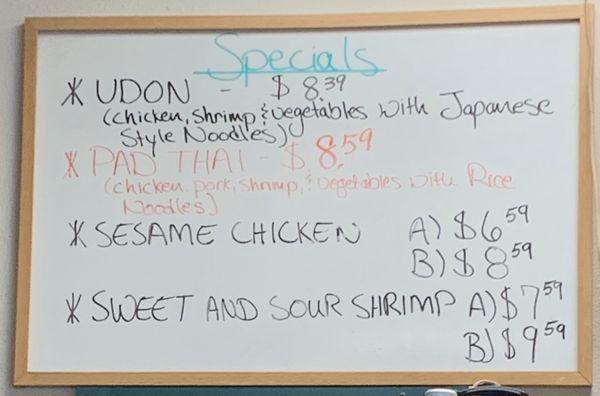 Specials
* UDON - $ 8.39
(Chicken, Shrimp, & Vegetables with Japanese
Style Noodles)
* PAD THAI - $ 8.59
(Chicken, pork, Shrimp, & Vegetables with Rice
Noodles)
* SESAME CHICKEN A) $6 59
B) $ 8 59
* SWEET AND SOUR SHRIMP A) $7 59
B) $9 59